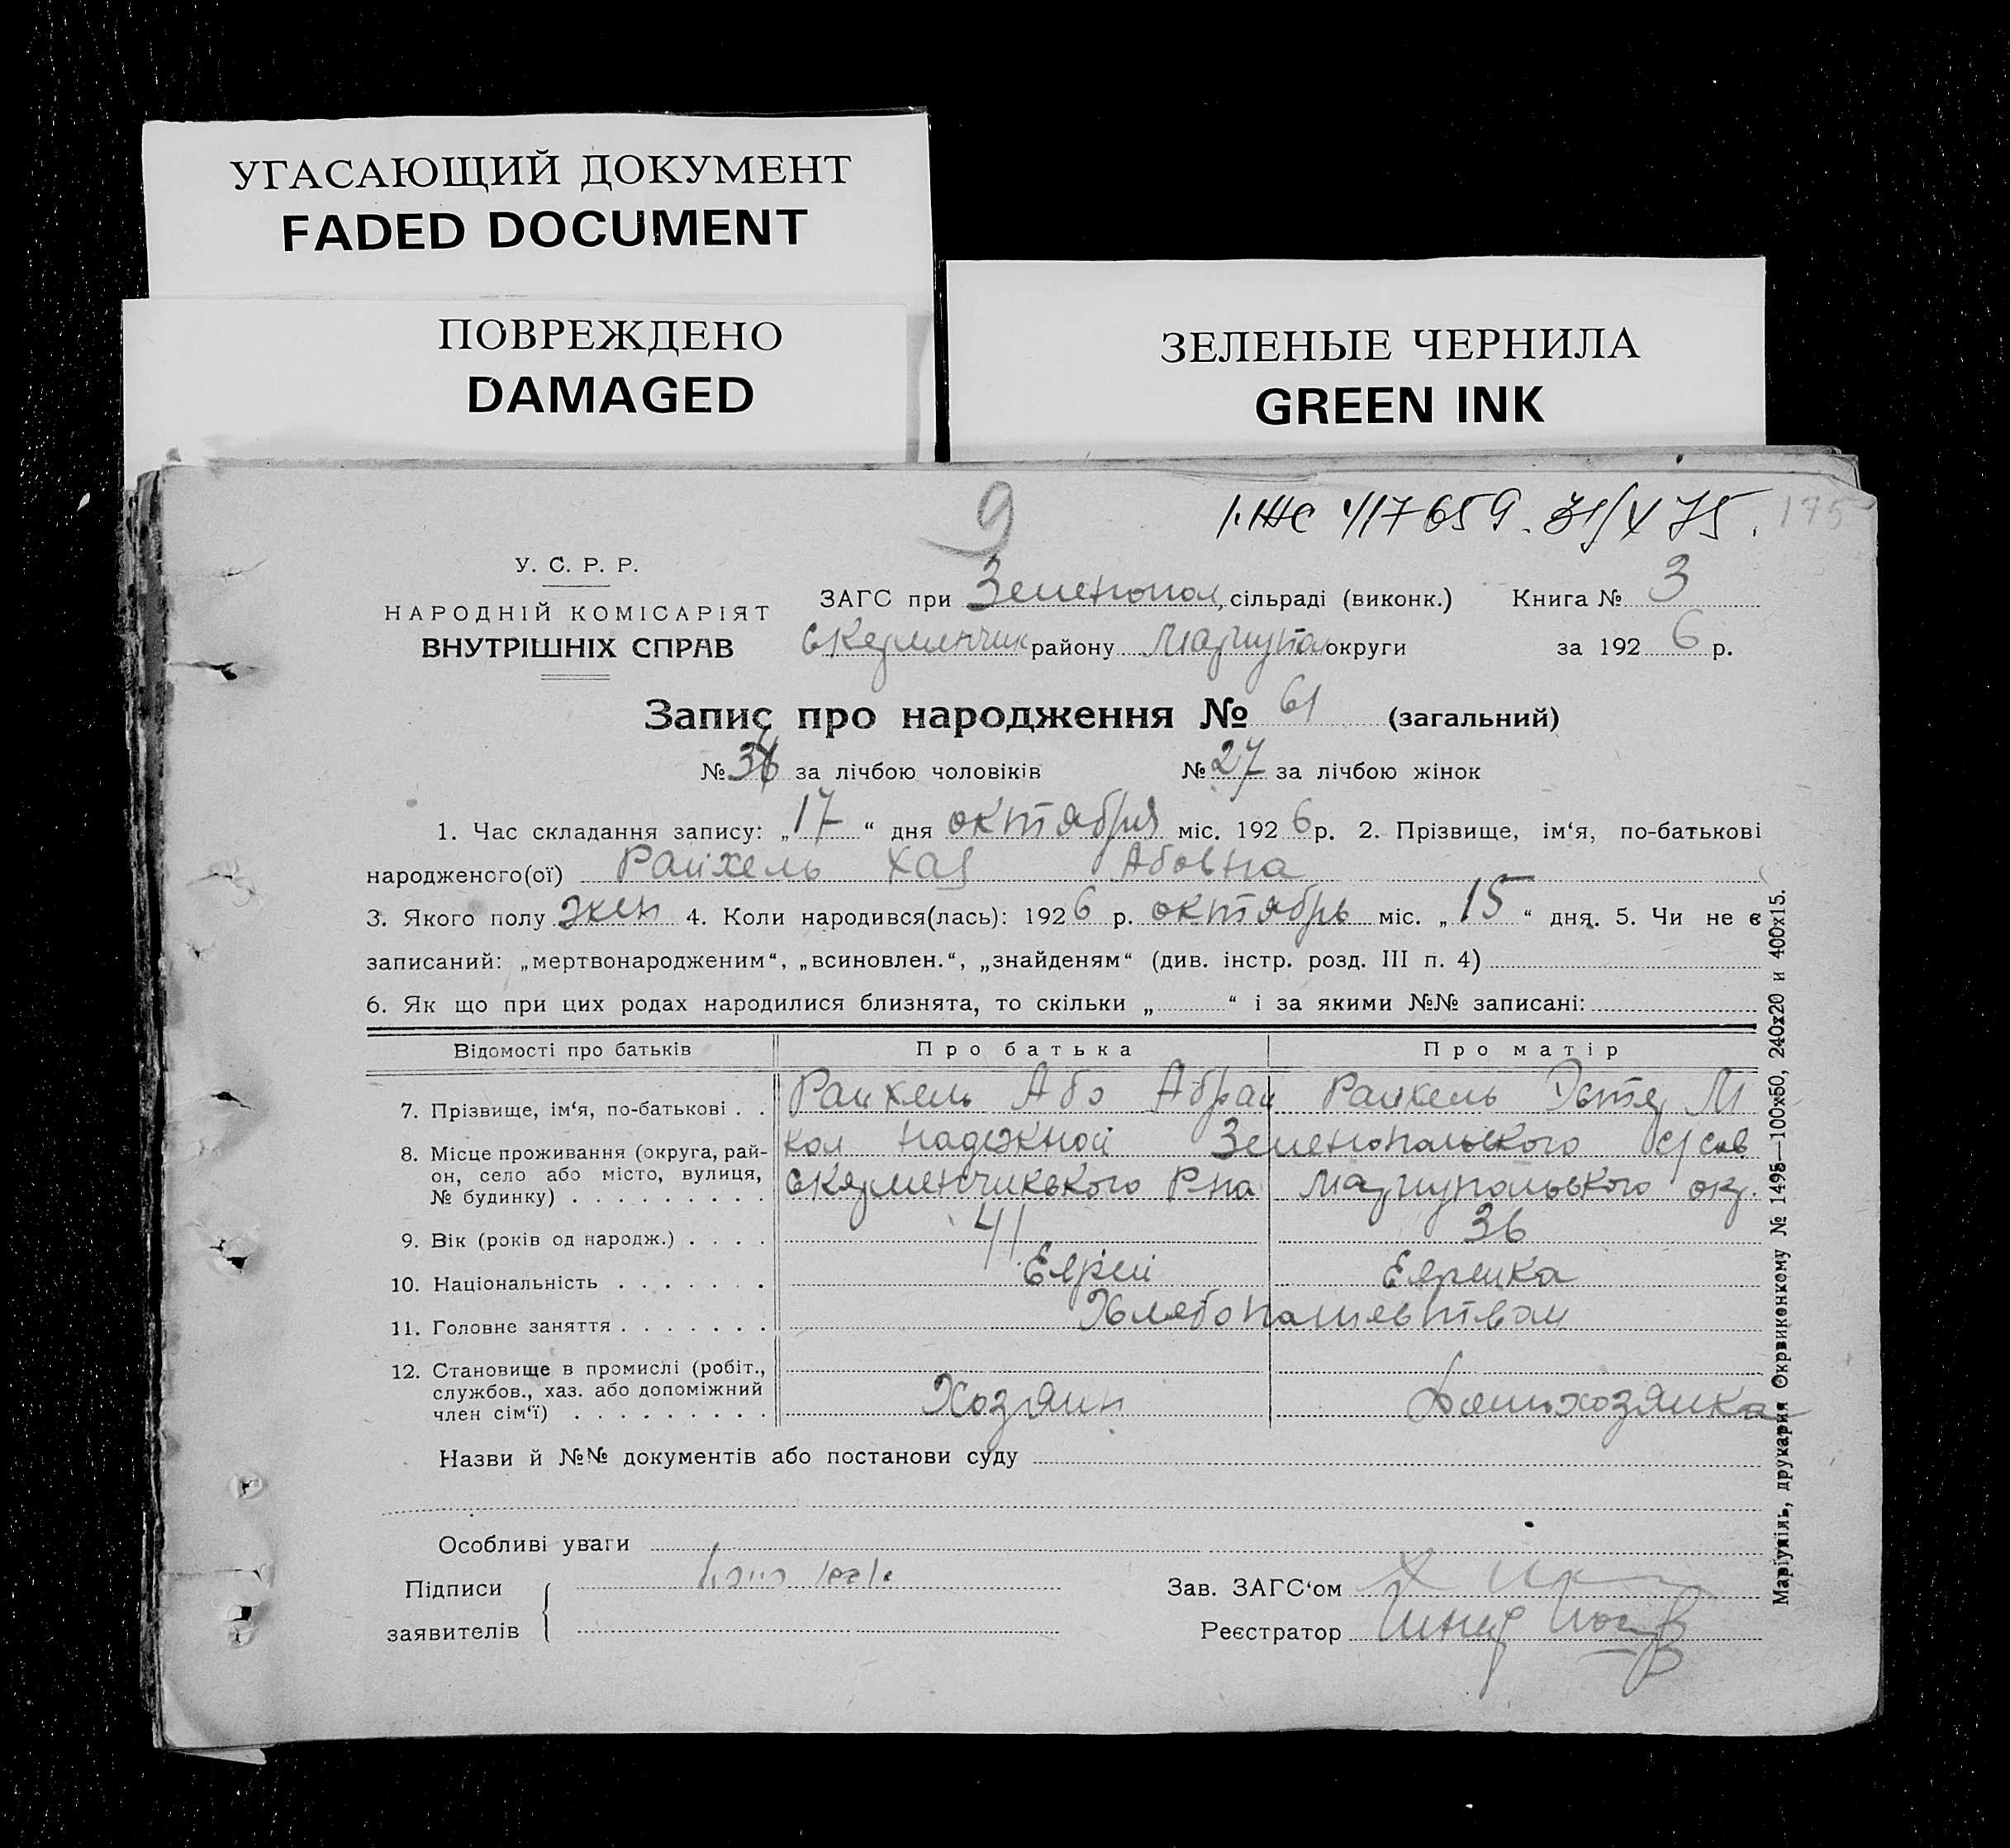 УГАСАЮЩИЙ ДОКУМЕНТ
FADED DOCUMENT
ПОВРЕЖДЕНО
DAMAGED
ЗЕЛЕНЫЕ ЧЕРНИЛА
GREEN INK
9
417659. 31/X 75. 175
У. С. Р. Р.
НАРОДНІЙ КОМІСАРІЯТ
ВНУТРІШНІХ СПРАВ
ЗАГС при Зеленопол, сільраді (виконк.) Книга № 3
Скерменчик району Мариупол округи за 1926 р.
Запис про народження № 61 (загальний)
№ 34 за лічбою чоловіків № 27 за лічбою жінок
1. Час складання запису: „17“ дня октября міс. 1926 р. 2. Прізвище, ім‘я, по-батькові
народженого(ої) Райхель Хая Абовна
3. Якого полу жен 4. Коли народився(лась): 1926 р. октябрь міс. „15“ дня. 5. Чи не є
записаний: „мертвонародженим“, „всиновлен.“, „знайденям“ (див. інстр. розд. III п. 4)
6. Як що при цих родах народилися близнята, то скільки „ “ і за якими №№ записані:
Відомості про батьків Про батька Про матір
7. Прізвище, ім‘я, по-батькові . . Райхель Або Абрам Райхель Эстер М
8. Місце проживання (округа, рай- кол Надежной Зеленопольского с/сов
он, село або місто, вулиця, Скерменчикського Р-на Мариупольського окр.
№ будинку) . . . . . . . . .
9. Вік (років од народж.) . . . . 41 36
10. Національність . . . . . . . Еврей Еврейка
11. Головне заняття . . . . . . . Хлебопашевством
12. Становище в промислі (робіт.,
службов., хаз. або допоміжний Хозяин Домохозяйка
член сім‘ї) . . . . . . . . .
Назви й №№ документів або постанови суду
Особливі уваги
Підписи Зав. ЗАГС‘ом
заявителів Реєстратор
Маріупіль, друкарня Окрвиконкому № 1495—100х50, 240х20 и 400х15.